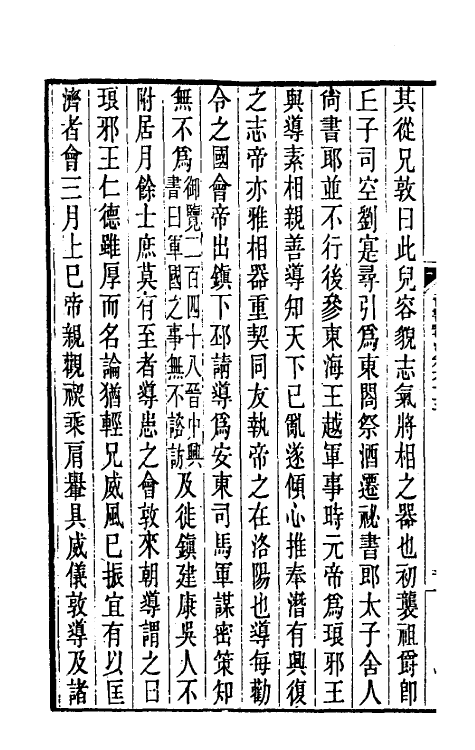 其從兄敦曰此兒容貌志氣將相之器也初襲祖爵卽
丘子司空劉寔尋引爲東閤祭酒遷祕書郎太子舍人
尙書郎並不行後參東海王越軍事時元帝爲琅邪王
與導素相親善導知天下已亂遂傾心推奉潛有興復
之志帝亦雅相器重契同友執帝之在洛陽也導每勸
令之國會帝出鎭下邳請導爲安東司馬軍謀密策知
無不爲御覽二百四十八晉中興書曰軍國之事無不諮訪及徙鎭建康吳人不
附居月餘士庶莫有至者導患之會敦來朝導謂之曰
琅邪王仁德雖厚而名論猶輕兄威風已振宜有以匡
濟者會三月上巳帝親觀禊乘肩轝具威儀敦導及諸